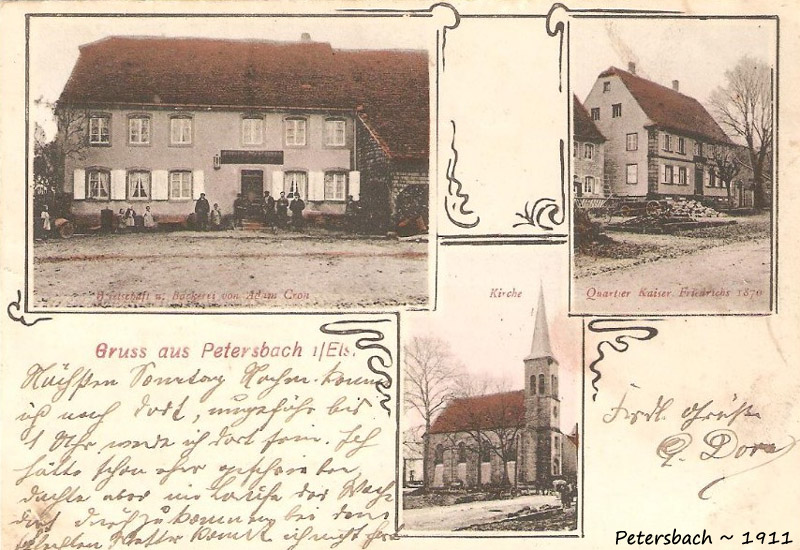 Wirtschaft u. Bäckerei von Adam Cron
Quartier Kaiser Friedrichs 1870
Kirche
Gruss aus Petersbach i/Els.
Nächsten Sonntag Nachm. komme
ich nach dort, ungefähr bis
1 Uhr werde ich dort sein. Ich
hätte schon eher geschrieben
dachte aber
bei dem
schlechten Wetter konnte ich nicht
Frdl. Grüße
G. Dorn
Petersbach ~ 1911